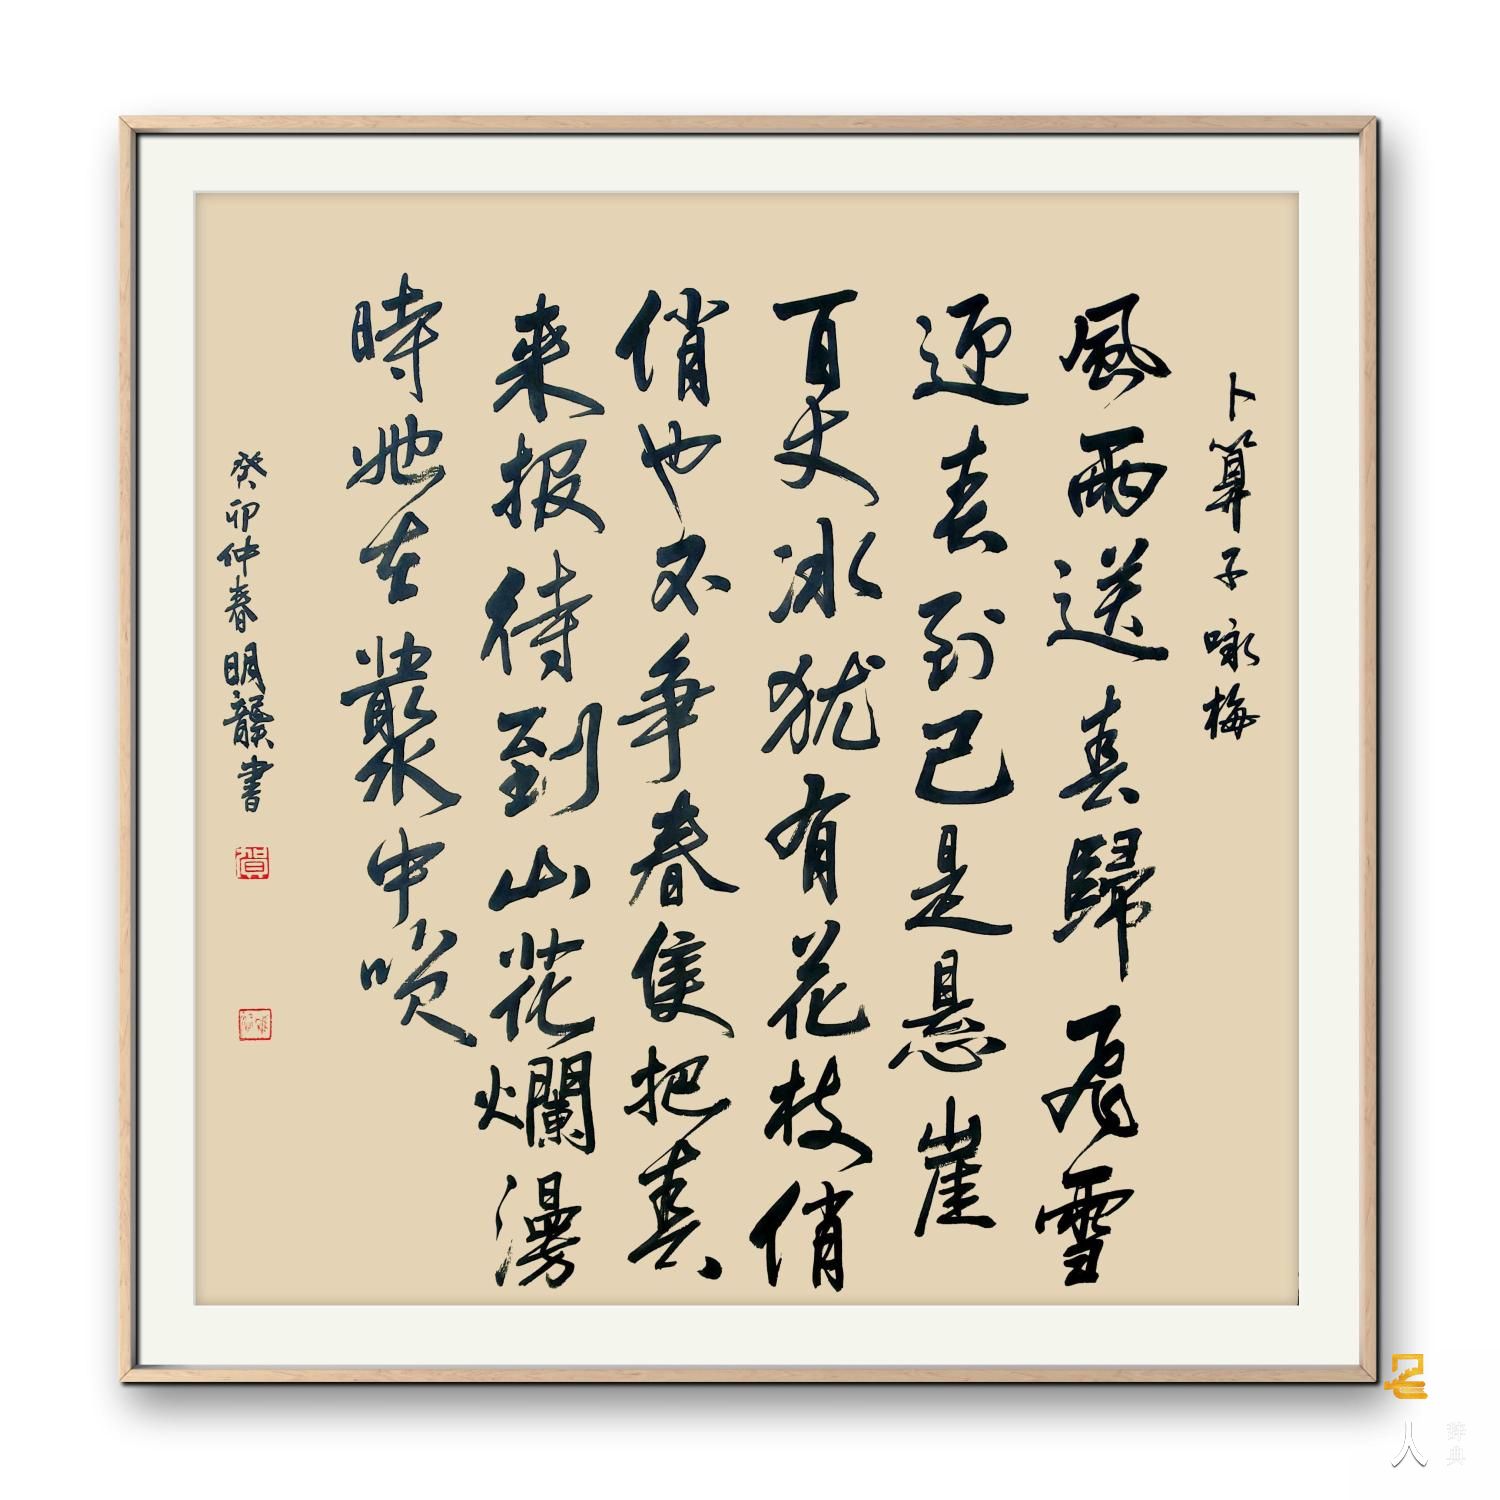 卜算子 咏梅
風雨送春歸飛雪
迎春到已是悬崖
百丈冰犹有花枝俏
俏也不争春隻把春
来报待到山花爛漫
時她在叢中笑
癸卯仲春明龑書
人
辞典